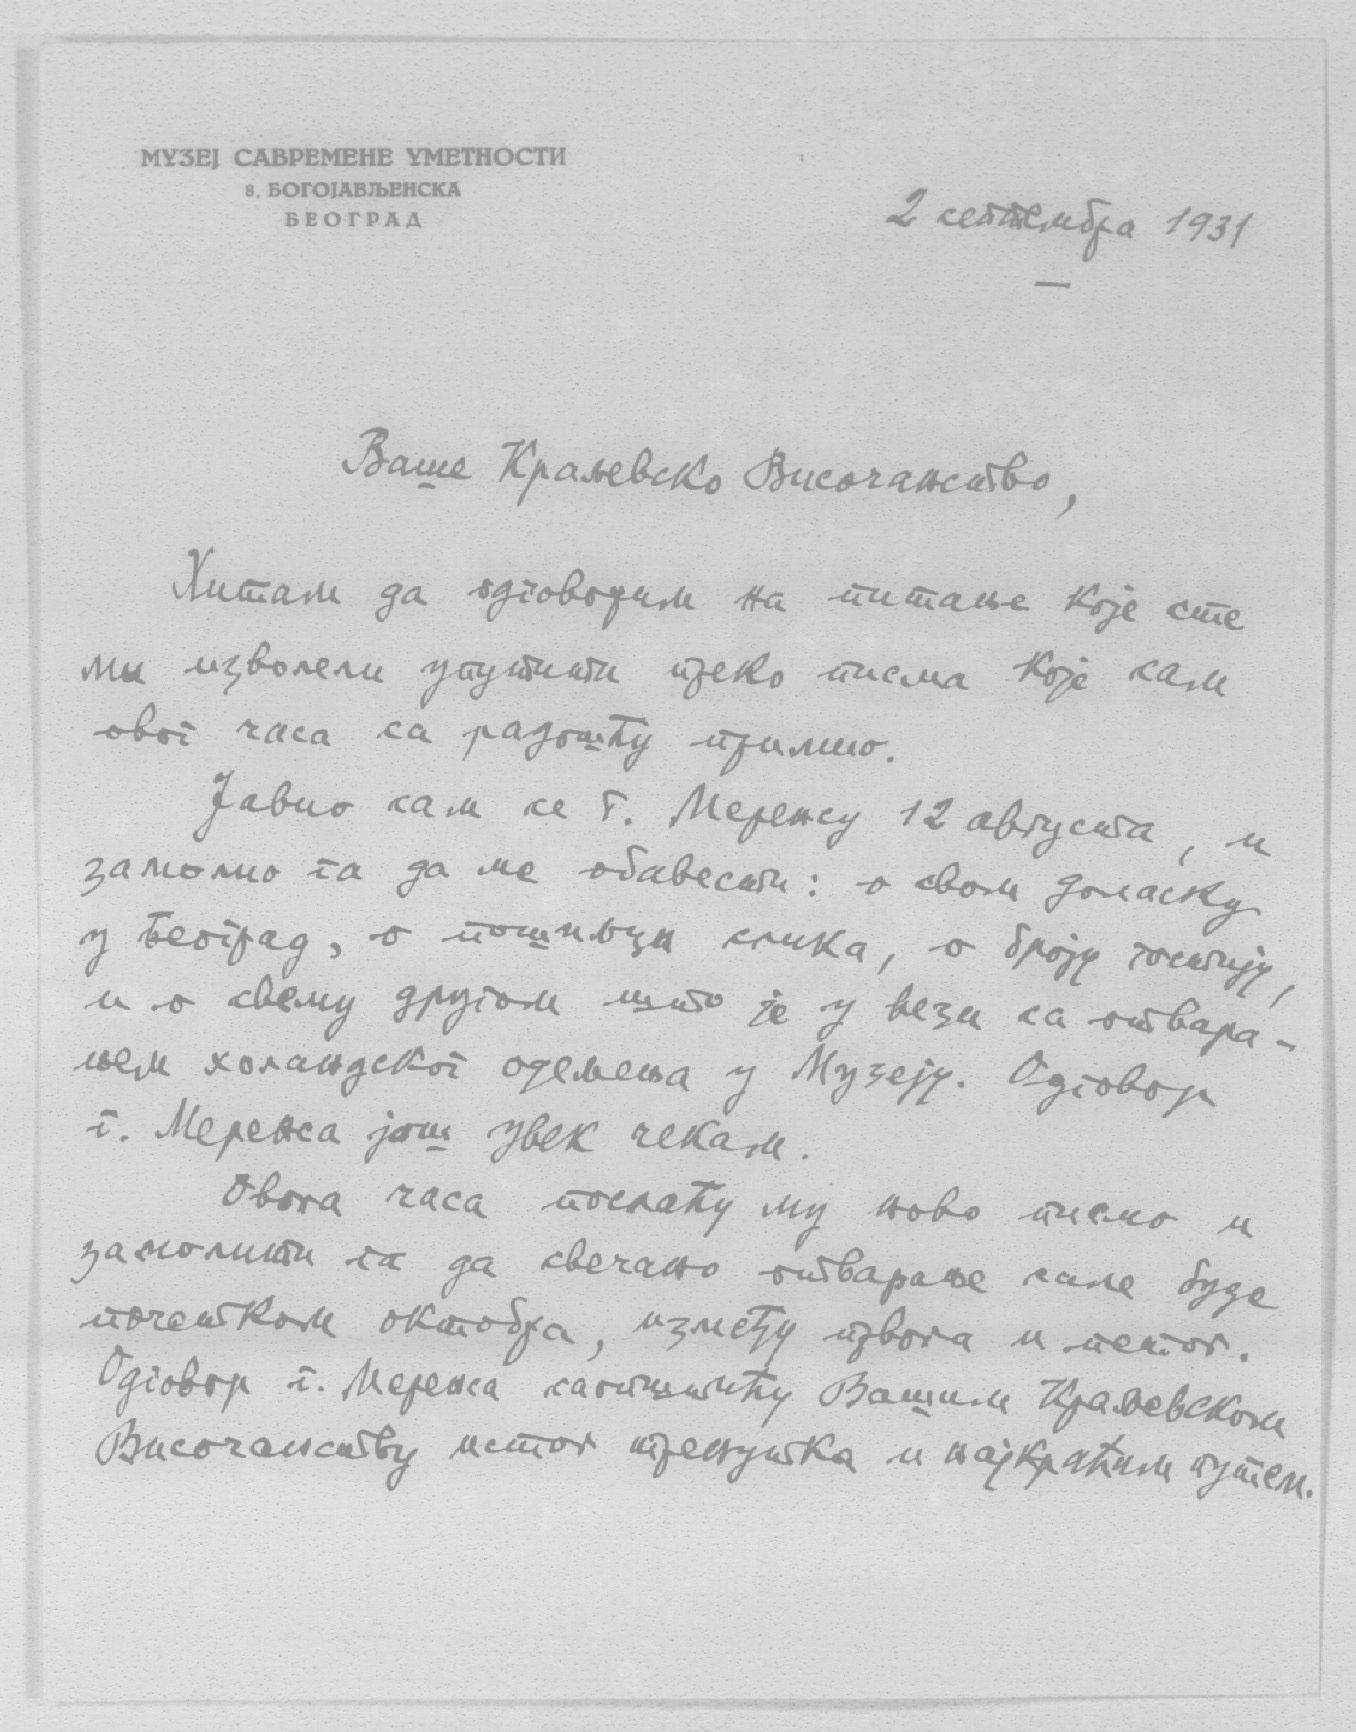 МУЗЕЈ САВРЕМЕНЕ УМЕТНОСТИ
8, БОГОЈАВЉЕНСКА
БЕОГРАД
2 септембра 1931
Ваше Краљевско Височанство,
Хитам да одговорим на питање које сте
ми изволели упутити преко писма које сам
овог часа са радошћу примио.
Јавио сам се г. Меренсу 12 августа, и
замолио га да ме обавести: о свом доласку
у Београд, о пошиљци слика, о броју гостију,
и о свему другом што је у вези са отвара-
њем холандског одељења у Музеју. Одговор
г. Меренса још увек чекам.
Овога часа послаћу му ново писмо и
замолити га да свечано отварање сале буде
почетком октобра, између првога и петог.
Одговор г. Меренса саопштићу Вашем Краљевском
Височанству истог тренутка и најкраћим путем.